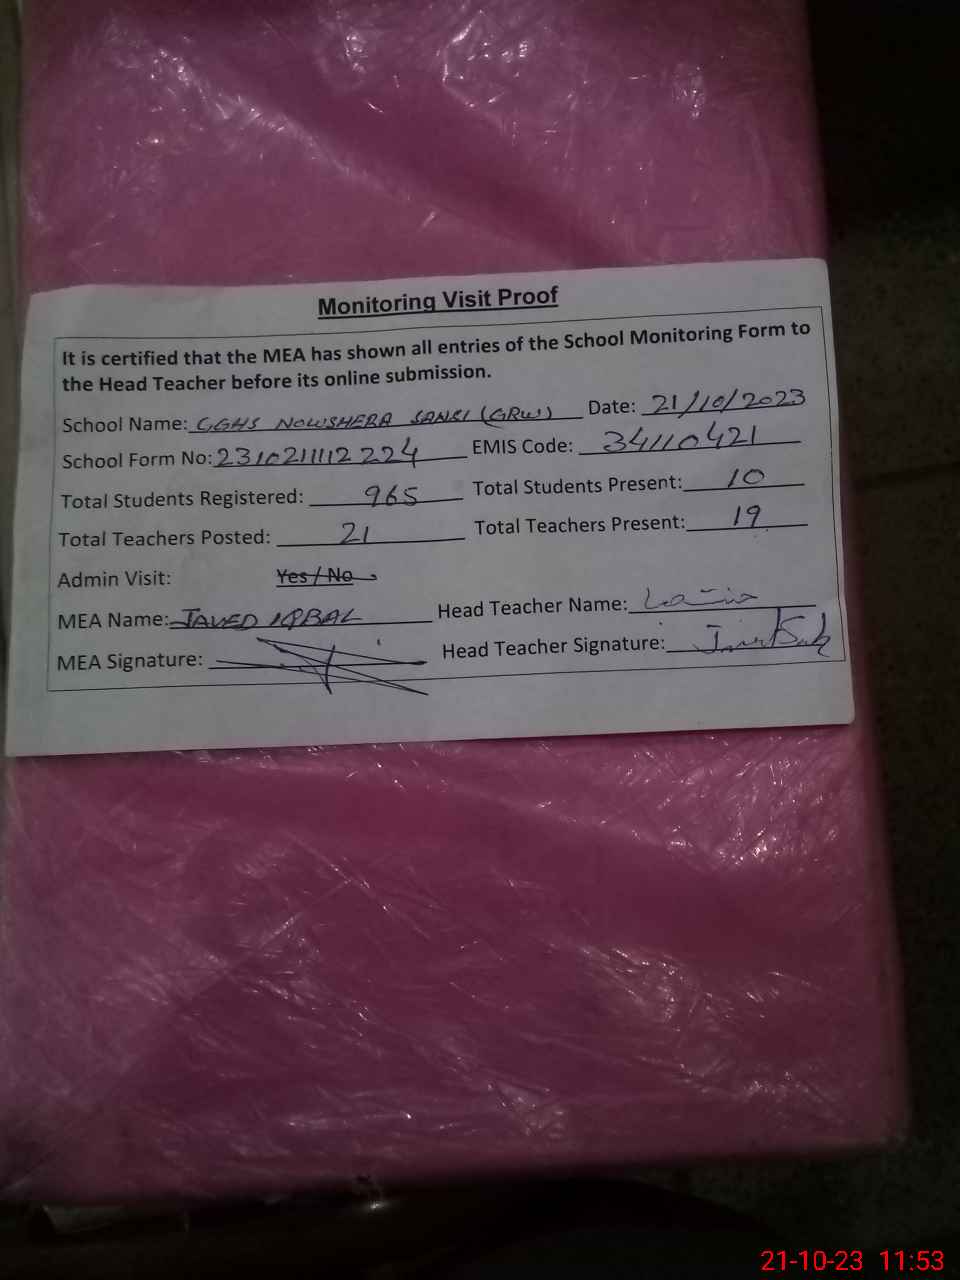 Monitoring Visit Proof
It is certified that the MEA has shown all entries of the School Monitoring Form to
the Head Teacher before its online submission.
School Name: GGHS NOWSHERA SANSI (GRW) Date: 21/10/2023
School Form No: 2310211112224 EMIS Code: 34110421
Total Students Registered: 965 Total Students Present: 10
Total Teachers Posted: 21 Total Teachers Present: 19
Admin Visit: Yes / No
MEA Name: JAVED IQBAL Head Teacher Name:
MEA Signature: Head Teacher Signature:
21-10-23 11:53